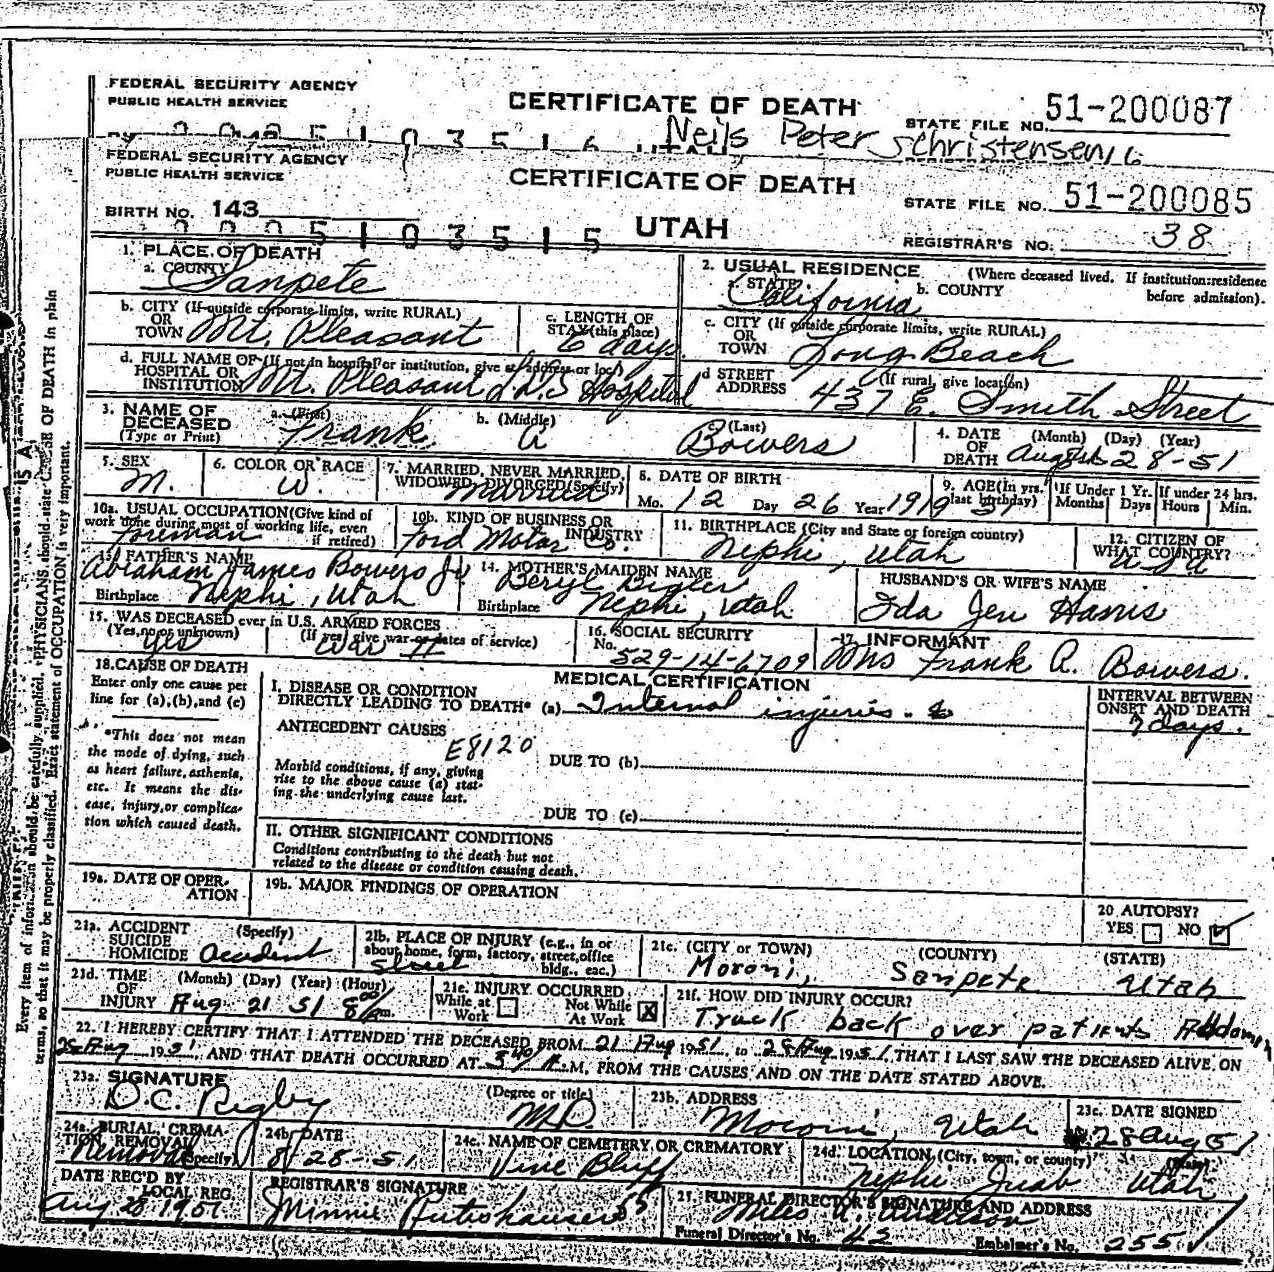 FEDERAL SECURITY AGENCY
PUBLIC HEALTH SERVICE
CERTIFICATE OF DEATH
STATE FILE NO. 51-200087
Neils Peter Christensen
FEDERAL SECURITY AGENCY
PUBLIC HEALTH SERVICE
CERTIFICATE OF DEATH
STATE FILE NO. 51-200085
BIRTH NO. 143
UTAH
REGISTRAR'S NO. 38
1. PLACE OF DEATH
a. COUNTY Sanpete
2. USUAL RESIDENCE (Where deceased lived. If institution: residence before admission).
a. STATE California b. COUNTY
b. CITY (If outside corporate limits, write RURAL) OR TOWN Mt. Pleasant
c. LENGTH OF STAY (this place) 6 days
c. CITY (If outside corporate limits, write RURAL) OR TOWN Long Beach
d. FULL NAME OF (If not in hospital or institution, give st. address or loc.) HOSPITAL OR INSTITUTION Mt. Pleasant L.D.S Hospital
d STREET ADDRESS (If rural, give location) 437 E. Smith Street
3. NAME OF DECEASED (Type or Print) a. (First) Frank b. (Middle) A c. (Last) Bowers
4. DATE OF DEATH (Month) (Day) (Year) August 28-51
5. SEX M.
6. COLOR OR RACE W.
7. MARRIED, NEVER MARRIED, WIDOWED, DIVORCED (Specify) Married
8. DATE OF BIRTH Mo. 12 Day 26 Year 1919
9. AGE (In yrs. last birthday) 31
If Under 1 Yr. Months Days
If under 24 hrs. Hours Min.
10a. USUAL OCCUPATION (Give kind of work done during most of working life, even if retired) Foreman
10b. KIND OF BUSINESS OR INDUSTRY Ford Motor Co.
11. BIRTHPLACE (City and State or foreign country) Nephi, Utah
12. CITIZEN OF WHAT COUNTRY? USA
13. FATHER'S NAME Abraham James Bowers Jr
Birthplace Nephi, Utah
14. MOTHER'S MAIDEN NAME Beryl Bigler
Birthplace Nephi, Utah
HUSBAND'S OR WIFE'S NAME
Ida Jen Harris
15. WAS DECEASED ever in U.S. ARMED FORCES
(Yes, no or unknown) yes (If yes, give war or dates of service) War II
16. SOCIAL SECURITY No. 529-14-6709
17. INFORMANT Mrs Frank A. Bowers.
18. CAUSE OF DEATH
Enter only one cause per line for (a), (b), and (c)
MEDICAL CERTIFICATION
INTERVAL BETWEEN ONSET AND DEATH
I. DISEASE OR CONDITION DIRECTLY LEADING TO DEATH* (a) Internal injuries.
7 days.
*This does not mean the mode of dying, such as heart failure, asthenia, etc. It means the disease, injury, or complication which caused death.
ANTECEDENT CAUSES
E8120
Morbid conditions, if any, giving rise to the above cause (a) stating the underlying cause last.
DUE TO (b)
DUE TO (c)
II. OTHER SIGNIFICANT CONDITIONS
Conditions contributing to the death but not related to the disease or condition causing death.
19a. DATE OF OPERATION
19b. MAJOR FINDINGS OF OPERATION
20 AUTOPSY?
YES NO
21a. ACCIDENT SUICIDE HOMICIDE (Specify) Accident
21b. PLACE OF INJURY (e.g., in or about home, form, factory, street, office bldg., eac.) Street
21c. (CITY or TOWN) (COUNTY) (STATE)
Moroni, Sanpete Utah
21d. TIME OF INJURY (Month) (Day) (Year) (Hour) Aug 21 51 8
21e. INJURY OCCURRED While at Work Not While At Work X
21f. HOW DID INJURY OCCUR?
Truck back over patients Abdomen
22. I HEREBY CERTIFY THAT I ATTENDED THE DECEASED FROM 21 Aug 1951 to 28 Aug 1951, THAT I LAST SAW THE DECEASED ALIVE ON
28 Aug 1951, AND THAT DEATH OCCURRED AT 540 A.M, FROM THE CAUSES AND ON THE DATE STATED ABOVE.
23a. SIGNATURE (Degree or title)
D.C. Rigby M.D.
23b. ADDRESS
Moroni, Utah
23c. DATE SIGNED
28 Aug 51
24a. BURIAL, CREMATION, REMOVAL (Specify) Removal
24b. DATE 8/28-51
24c. NAME OF CEMETERY OR CREMATORY
Vine Bluff
24d. LOCATION (City, town, or county) (State)
Nephi Juab Utah
DATE REC'D BY LOCAL REG. Aug 28 1951
REGISTRAR'S SIGNATURE
Minnie
25. FUNERAL DIRECTOR'S SIGNATURE AND ADDRESS
Miles
Funeral Director's No. 42 Embalmer's No. 255
Every item of information should be carefully supplied. PHYSICIANS should state CAUSE OF DEATH in plain
terms, so that it may be properly classified. Exact statement of OCCUPATION is very important.